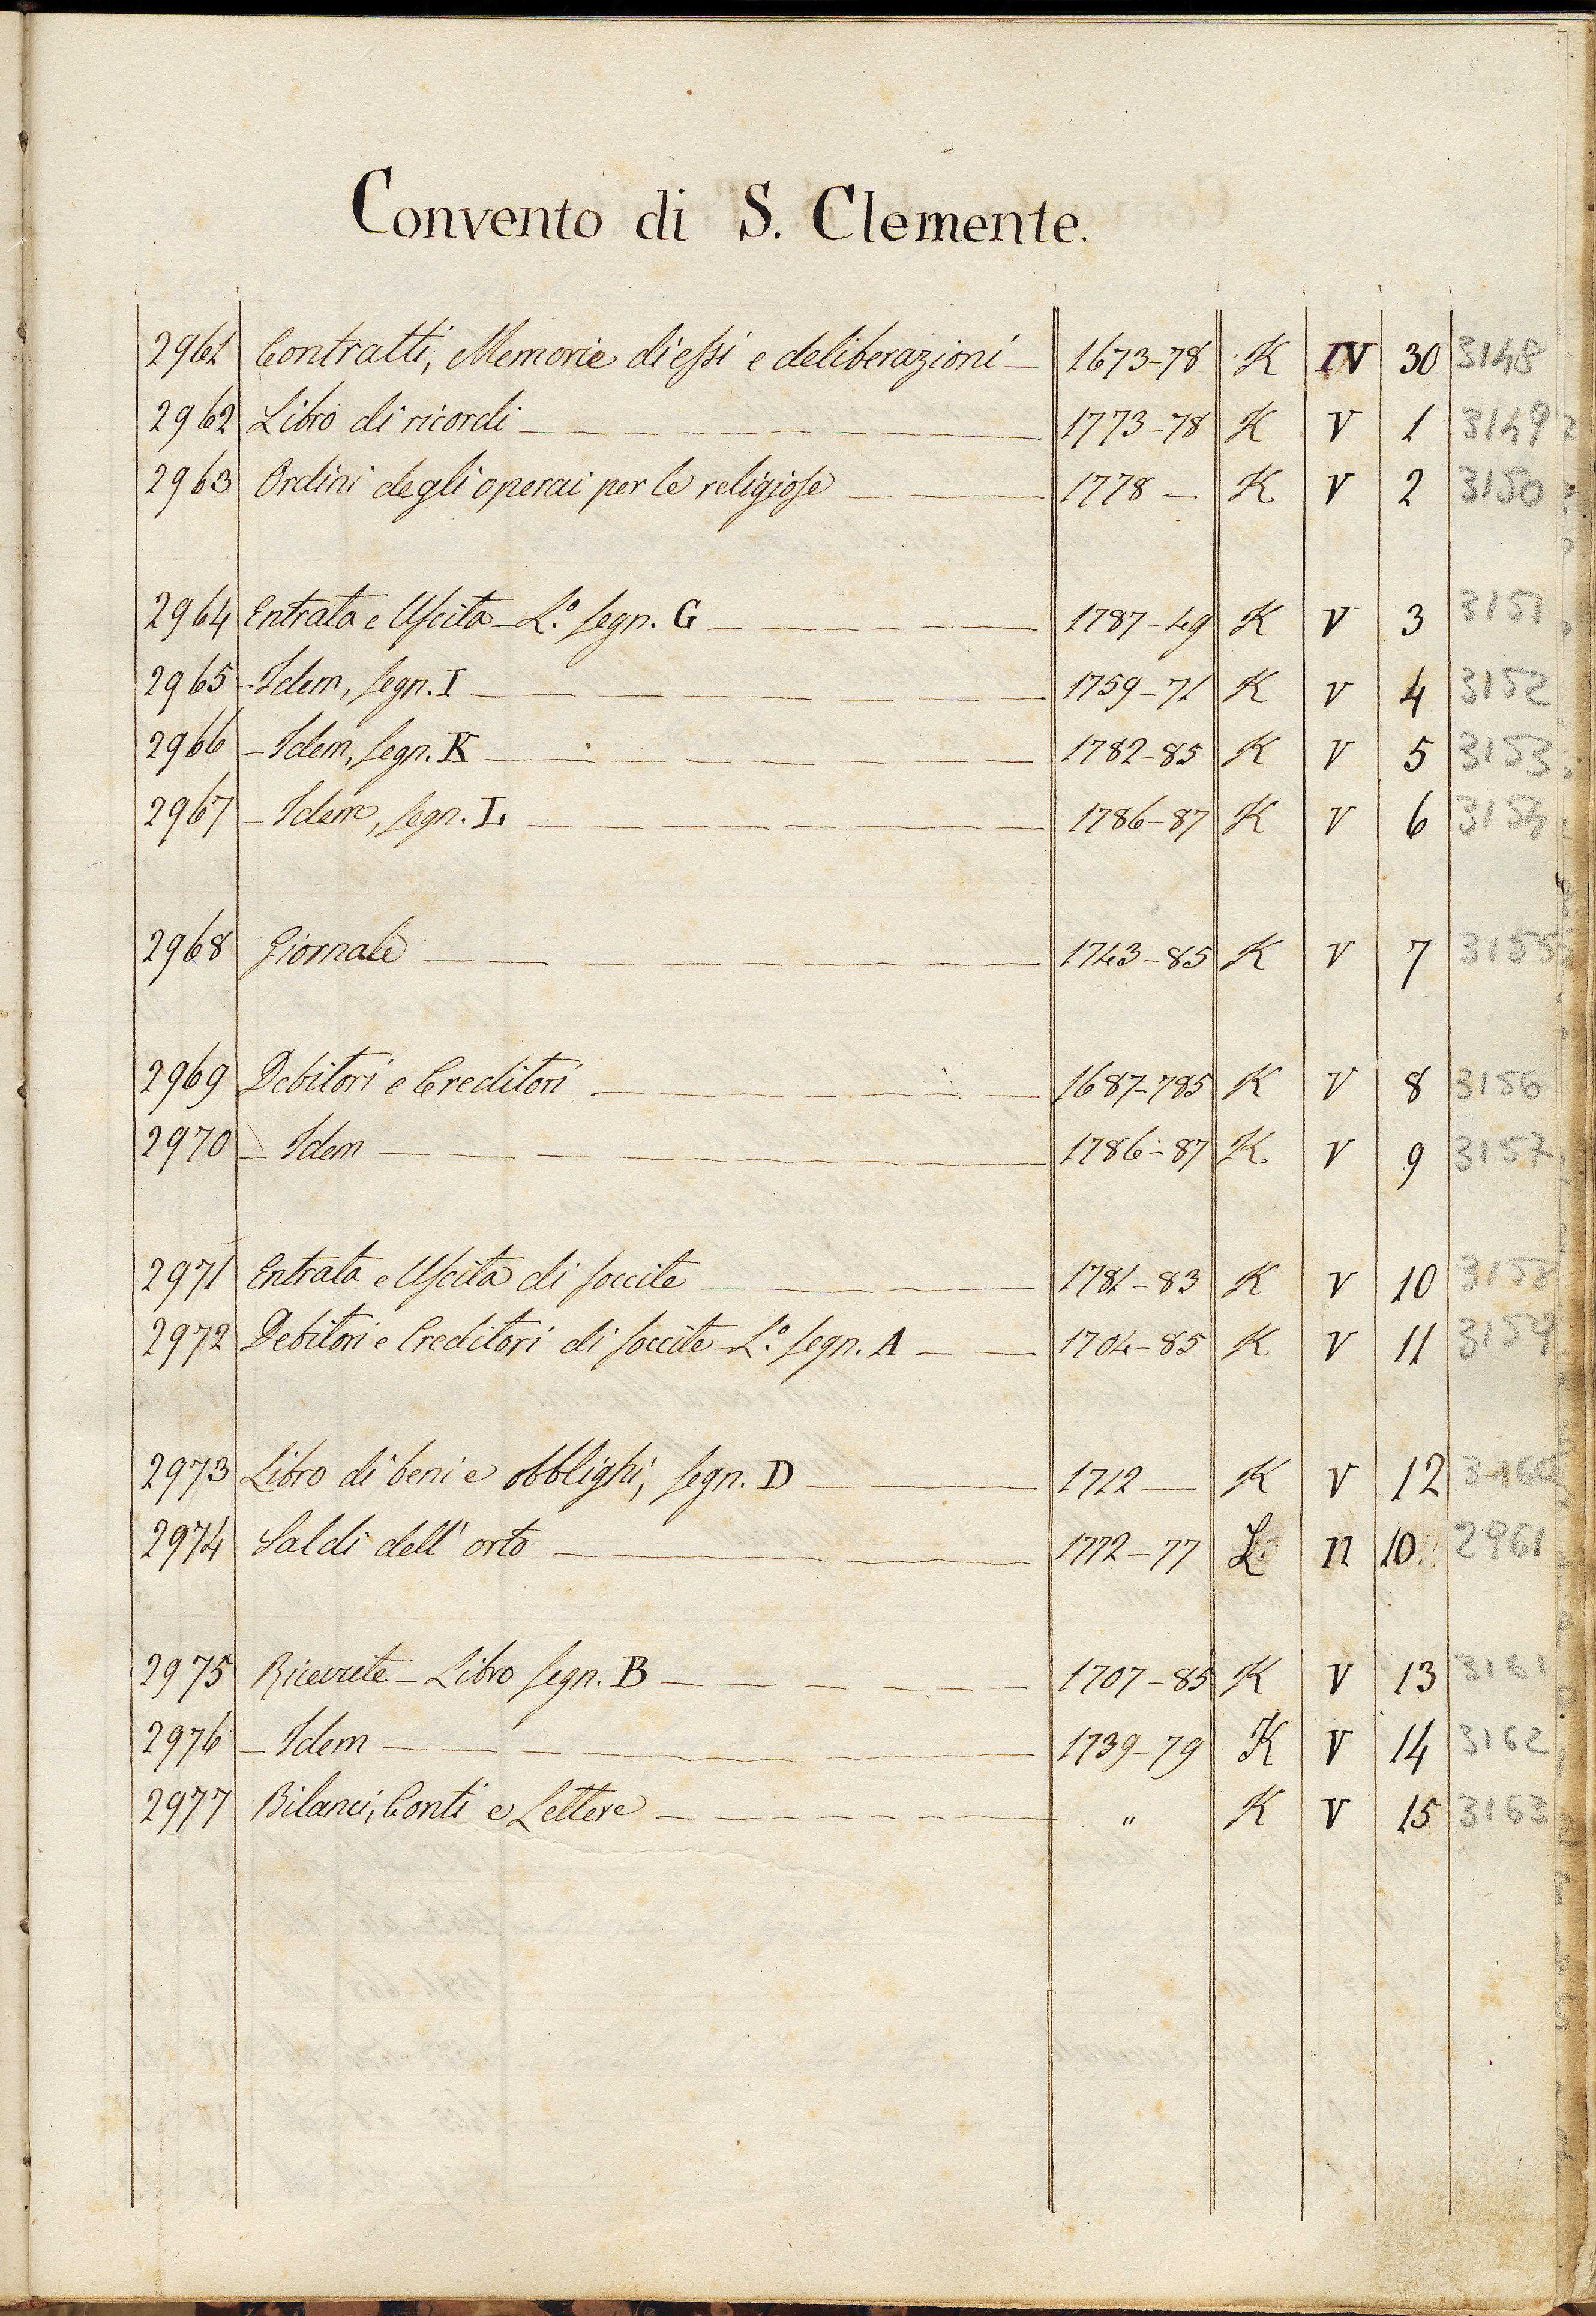 Convento di S. Clemente.
2961 Contratti, Memorie di essi e deliberazioni — 1673-78 K IV 30 3148
2962 Libro di ricordi — 1773-78 K V 1 3149
2963 Ordini degli operai per le religiose — 1778 — K V 2 3150
2964 Entrata e Uscita – L.º segn. G — 1787-49 K V 3 3151
2965 – Idem, segn. I — 1759-71 K V 4 3152
2966 – Idem, segn. K — 1782-85 K V 5 3153
2967 – Idem, segn. L — 1786-87 K V 6 3154
2968 Giornale — 1743-85 K V 7 3155
2969 Debitori e Creditori — 1687-785 K V 8 3156
2970 – Idem — 1786-87 K V 9 3157
2971 Entrata e Uscita di soccite — 1781-83 K V 10 3158
2972 Debitori e Creditori di soccite – L.º segn. A — 1704-85 K V 11 3159
2973 Libro di beni e obblighi, segn. D — 1712 — K V 12 3160
2974 Saldi dell' orto — 1772-77 L II 10. 2961
2975 Ricevute – Libro segn. B — 1707-85 K V 13 3161
2976 – Idem — 1739-79 K V 14 3162
2977 Bilanci, Conti e Lettere — " K V 15 3163